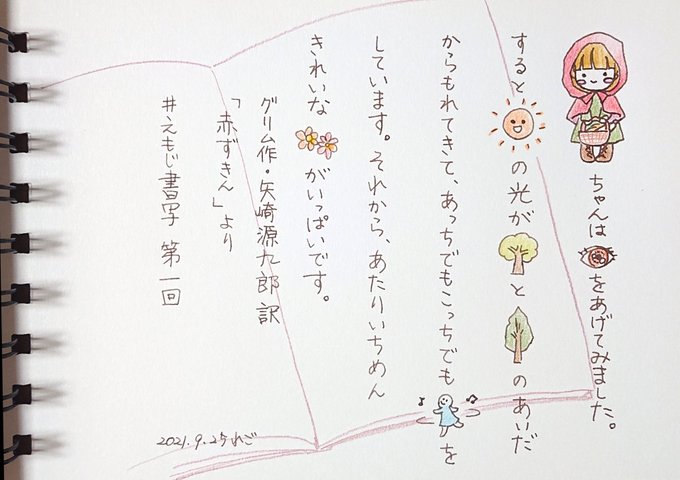 ちゃんは をあげてみました。
すると の光が と のあいだ
からもれてきて、あっちでもこっちでも を
しています。それから、あたりいちめん
きれいな がいっぱいです。
グリム作・矢崎源九郎 訳
「赤ずきん」より
#えもじ書写 第一回
2021.9.25